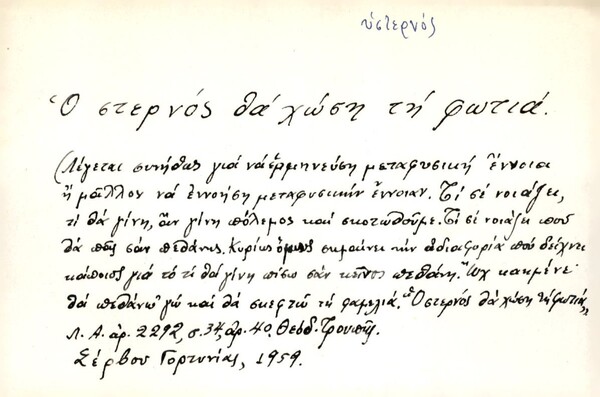 ὑστερνός
Ὁ στερνός θά χώση τή φωτιά.
(Λέγεται συνήθως γιά νά ἑρμηνεύση μεταφυσική ἔννοια
ἤ μᾶλλον νά ἐννοήση μεταφυσικήν ἔννοιαν. Τί σέ νοιάζει,
τί θά γίνη, ἄν γίνη πόλεμος καί σκοτωθοῦμε. Τί σέ νοιάζει ποῦ
θά πᾶς σάν πεθάνης. Κυρίως ὅμως σημαίνει τήν ἀδιαφορία πού δείχνει
κάποιος γιά τό τί θά γίνη πίσω σάν κεῖνος πεθάνη. "Ὤχ καημένε
θά πεθάνω 'γώ καί θά σκεφτῶ τή φαμελιά. "Ὁ στερνός θά χώση τή φωτιά„
Λ. Α. ἀρ. 2292, σ. 34, ἀρ. 40. Θεόδ. Τρουπῆς.
Σέρβου Γορτυνίας, 1959.